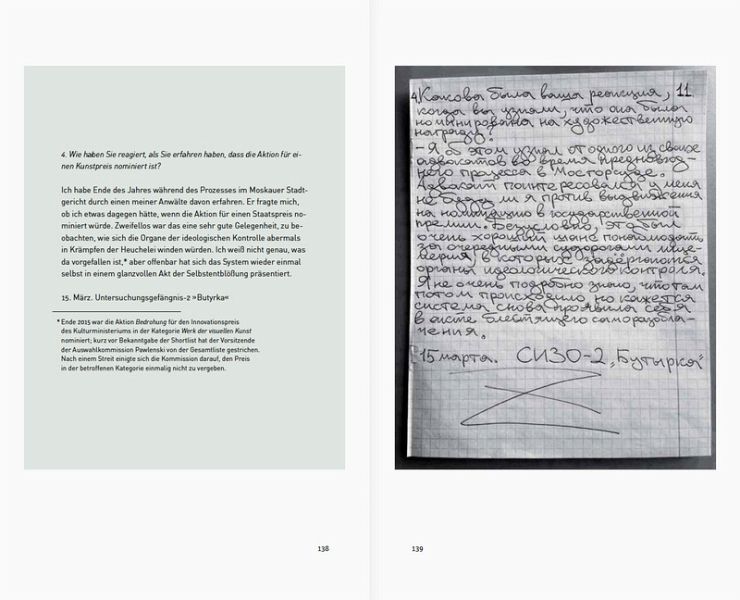 4. Wie haben Sie reagiert, als Sie erfahren haben, dass die Aktion für ei-
nen Kunstpreis nominiert ist?
Ich habe Ende des Jahres während des Prozesses im Moskauer Stadt-
gericht durch einen meiner Anwälte davon erfahren. Er fragte mich,
ob ich etwas dagegen hätte, wenn die Aktion für einen Staatspreis no-
miniert würde. Zweifellos war das eine sehr gute Gelegenheit, zu be-
obachten, wie sich die Organe der ideologischen Kontrolle abermals
in Krämpfen der Heuchelei winden würden. Ich weiß nicht genau, was
da vorgefallen ist,* aber offenbar hat sich das System wieder einmal
selbst in einem glanzvollen Akt der Selbstentblößung präsentiert.
15. März. Untersuchungsgefängnis-2 »Butyrka«
* Ende 2015 war die Aktion Bedrohung für den Innovationspreis
des Kulturministeriums in der Kategorie Werk der visuellen Kunst
nominiert; kurz vor Bekanntgabe der Shortlist hat der Vorsitzende
der Auswahlkommission Pawlenski von der Gesamtliste gestrichen.
Nach einem Streit einigte sich die Kommission darauf, den Preis
in der betroffenen Kategorie einmalig nicht zu vergeben.
138
4. Какова была ваша реакция, 11
когда вы узнали, что она была
номинирована на художественную
награду?
- Я об этом узнал от одного из своих
адвокатов во время предновогод-
него процесса в Мосгорсуде.
Адвокат поинтересовался у меня
не буду ли я против выдвижения
на номинацию в государственной
премии. Безусловно, это был
очень хороший шанс понаблюдать
за очередными судорогами лице-
мерия, в которых задёргаются
органы идеологического контроля.
Я не очень подробно знаю, что там
потом происходило, но кажется
система снова проявила себя
в акте блестящего саморазобла-
чения.
15 марта. СИЗО-2 „Бутырка"
139